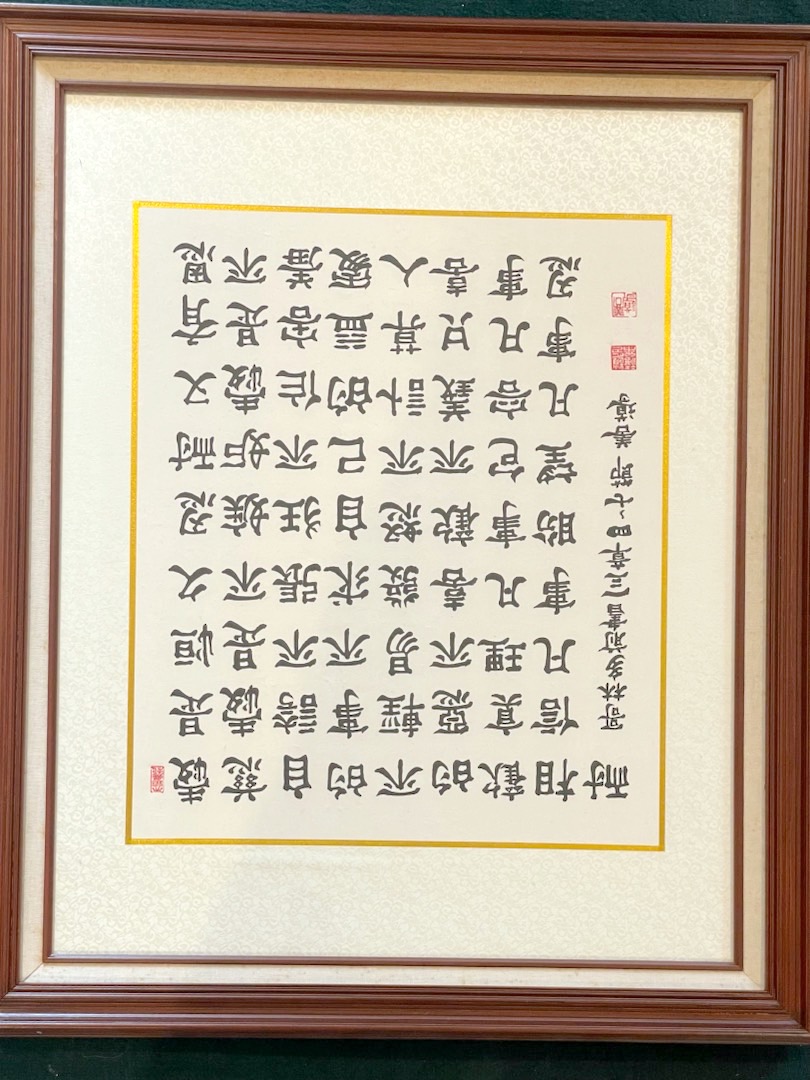 愛是恆久忍耐又有恩
慈愛是不嫉妒愛是不
自誇不張狂不作害羞
的事不求自己的益處
不輕易發怒不計算人
的惡不喜歡不義只喜
歡真理凡事包容凡事
相信凡事盼望凡事忍
耐 哥林多前書十三章四~七節 善導